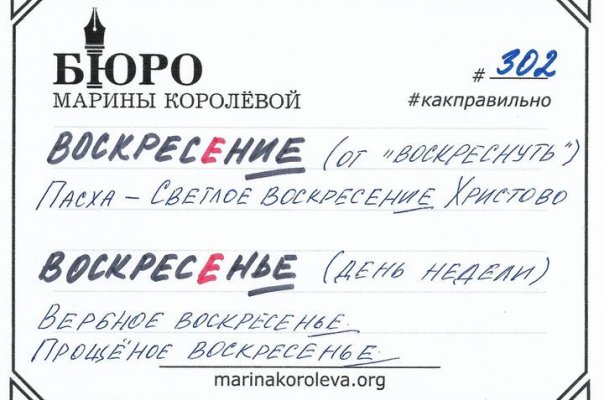 БЮРО
МАРИНЫ КОРОЛЁВОЙ
# 302
#какправильно
ВОСКРЕСЕНИЕ (от "воскреснуть")
Пасха – Светлое воскресение Христово
ВОСКРЕСЕНЬЕ (день недели)
Вербное воскресенье
Прощёное воскресенье
marinakoroleva.org